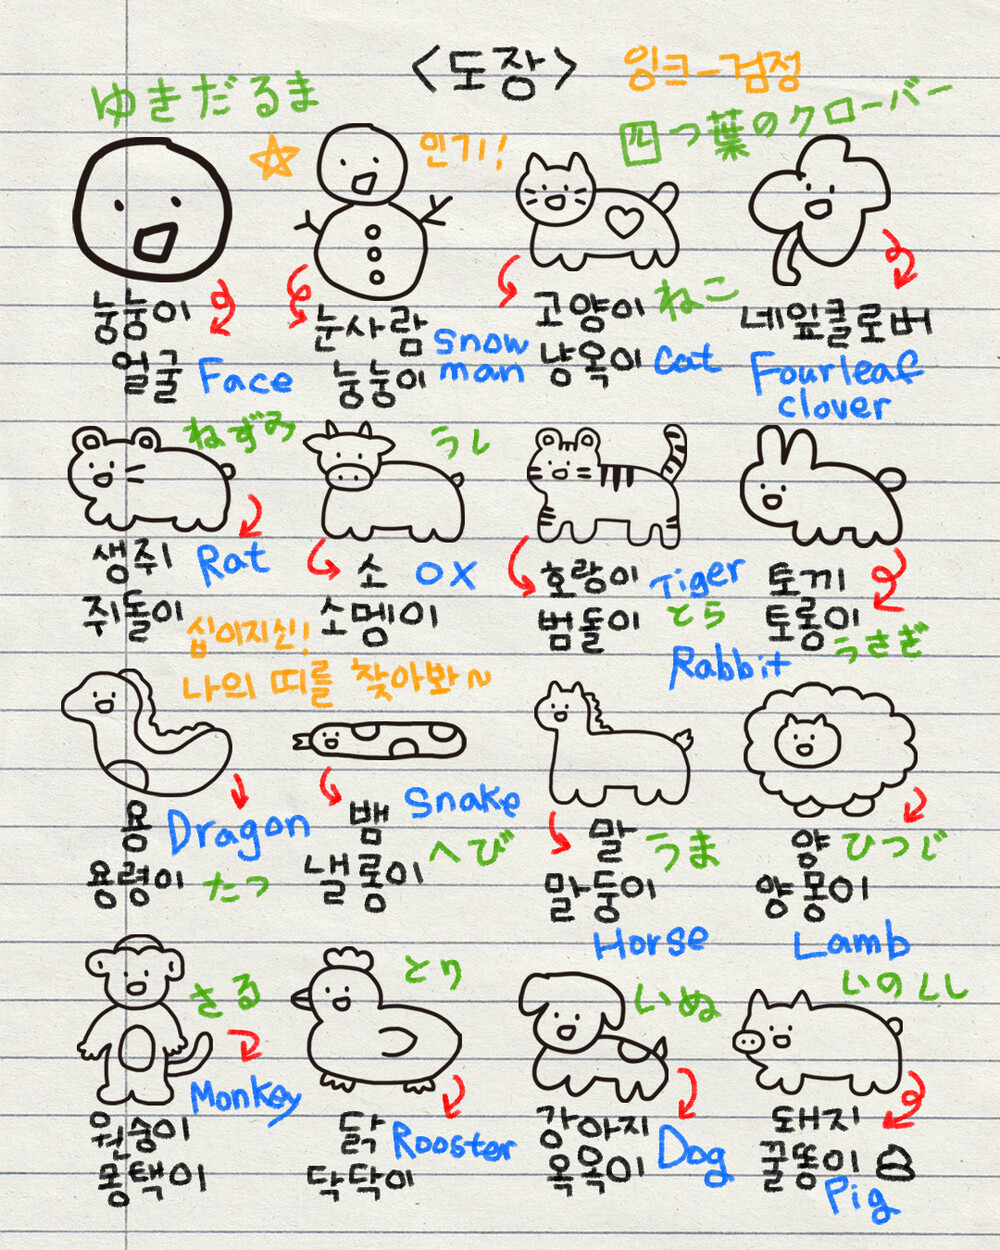 <도장>
잉크-검정
ゆきだるま
인기!
四つ葉のクローバー
눙눙이
얼굴
Face
눈사람
눙눙이
snow
man
고양이
ねこ
냥옥이
cat
네잎클로버
Fourleaf
clover
ねずみ
うし
생쥐
쥐돌이
Rat
소
소멩이
OX
호랑이
범돌이
Tiger
とら
토끼
토롱이
うさぎ
Rabbit
십이지신!
나의 띠를 찾아봐~
용
용령이
Dragon
たつ
뱀
낼롱이
Snake
へび
말
말둥이
うま
Horse
양
양몽이
ひつじ
Lamb
さる
とり
いぬ
いのしし
Monkey
원숭이
몽택이
닭
닥닥이
Rooster
강아지
옥옥이
Dog
돼지
꿀똥이
Pig